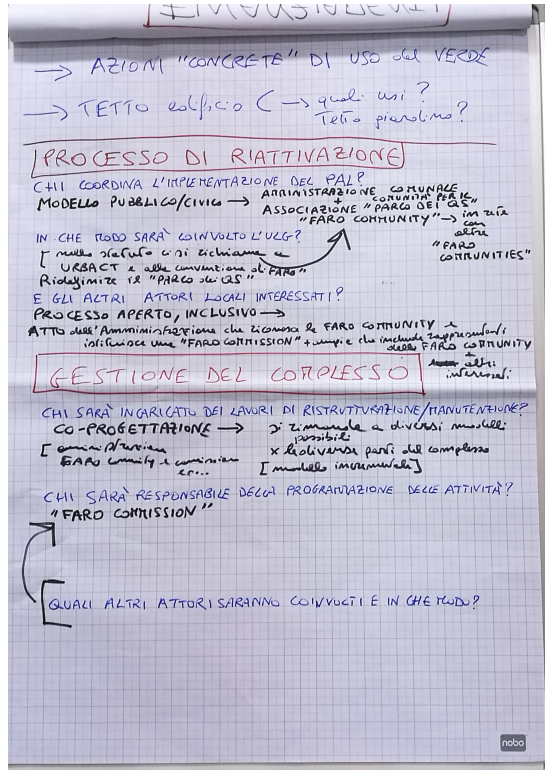 FINANZIAMENTI
→ AZIONI "CONCRETE" DI USO del VERDE
→ TETTO edificio (→ quali usi?
Tetto giardino?
PROCESSO DI RIATTIVAZIONE
CHI COORDINA L'IMPLEMENTAZIONE DEL PAL?
MODELLO PUBBLICO/CIVICO → AMMINISTRAZIONE COMUNALE
+ COMUNITÀ PER IL
ASSOCIAZIONE "PARCO DEI QS"
"FARO COMMUNITY" → in rete
con
altre
"FARO
COMMUNITIES"
IN CHE MODO SARÀ COINVOLTO L'ULG?
[nello statuto ci si richiama a
URBACT e alla convenzione di FARO"
Ridefinire il "PARCO dei QS"
E GLI ALTRI ATTORI LOCALI INTERESSATI?
PROCESSO APERTO, INCLUSIVO →
ATTO dell'Amministrazione che riconosce la FARO COMMUNITY e
istituisce una "FARO COMMISSION" + ampia che include rappresentanti
della FARO COMMUNITY
+
altri
interessati
GESTIONE DEL COMPLESSO
CHI SARÀ INCARICATO DEI LAVORI DI RISTRUTTURAZIONE/MANUTENZIONE?
CO-PROGETTAZIONE → si rimanda a diversi modelli
possibili
x le diverse parti del complesso
[modello incrementali]
[amministrazione
FARO community e commission
ecc...
CHI SARÀ RESPONSABILE DELLA PROGRAMMAZIONE DELLE ATTIVITÀ?
"FARO COMMISSION"
QUALI ALTRI ATTORI SARANNO COINVOLTI E IN CHE MODO?
nobo